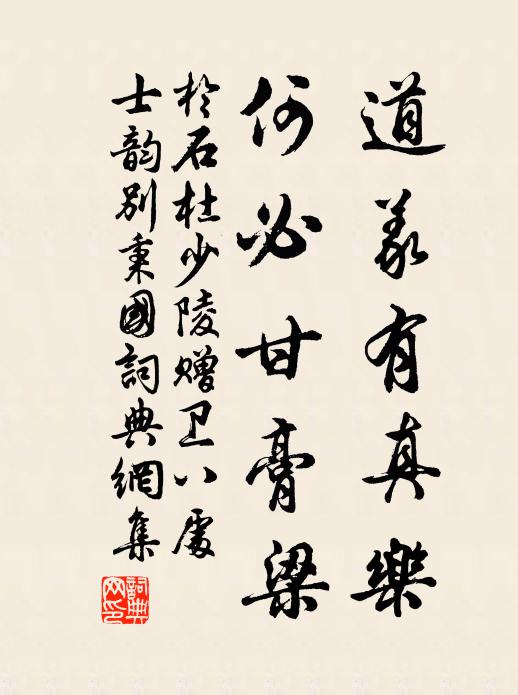 道義有真樂
何必甘膏粱
於石杜少陵赠卫八處
士韵别秉國詞典網集
詞典網印